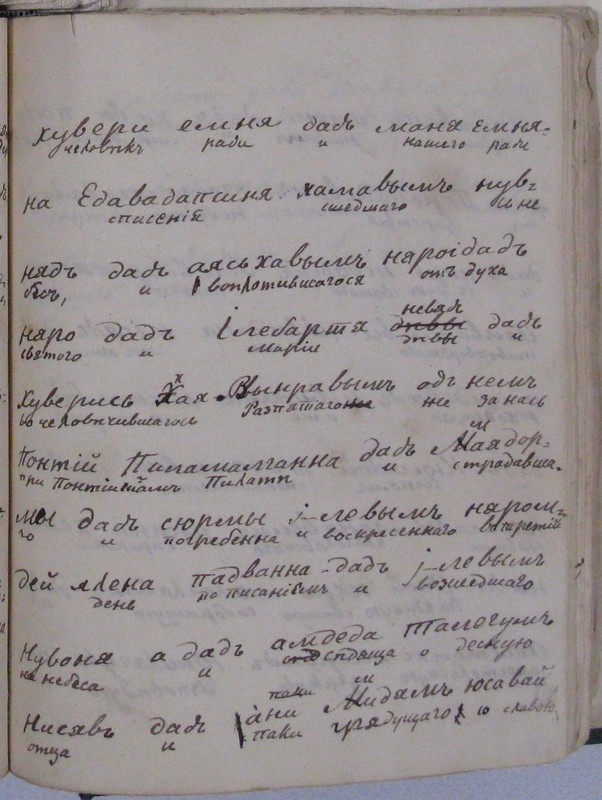 хувери емня дадъ маня емня-
человѣкъ ради и нашего ради
на Едавадапсиня хамавымъ нув-
спасенія сшедшаго съ не
нядъ дадъ аясьхавымъ няроідадъ
бесъ, и воплотившагося отъ духа
невядъ
няро дадъ Ілебартя дадъ
святого и маріи дѣвы и
хуверись Хая Вынравымъ одъ немъ
вочеловѣчившагось Разпятаго же за насъ
Понтій Пиламалганна дадъ Маядор-
при Понтійстѣмъ Пилатѣ и страдавша-
мы дадъ сюрмы і-левымъ няром-
го и погребенна и воскресеннаго вътретій
дей ялена падванна-дадъ і-левымъ
день по писаніемъ и возшедшаго
Нувоня а дадъ амдеда талегумъ
на небеса и сѣдяща о десную
паки
Нисявъ дадъ ани Мидямъ юсавай
отца и паки грядущаго со славою